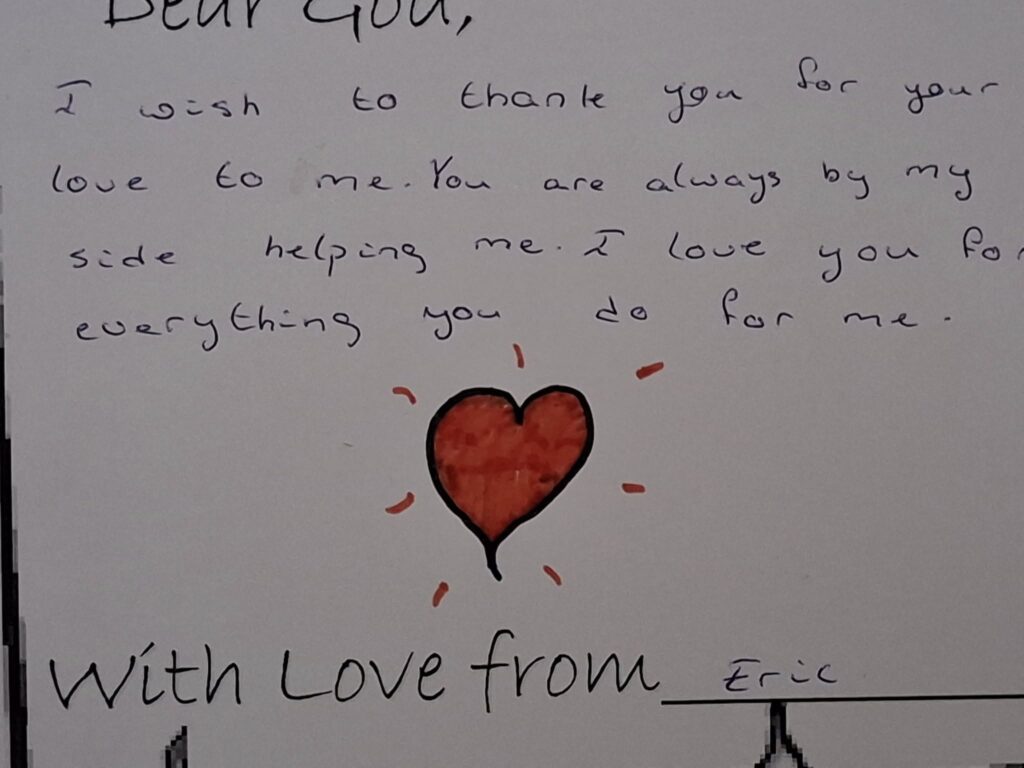 Dear God,
I wish to thank you for your
love to me. You are always by my
side helping me. I love you for
everything you do for me.
With Love from Eric